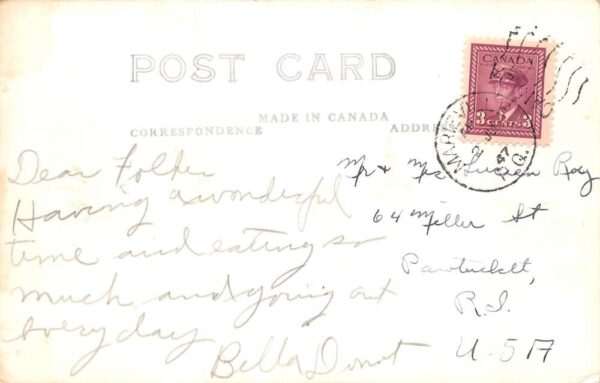 POST CARD
MADE IN CANADA
CORRESPONDENCE
ADDRE
CANADA
3 CENTS 3
MARIEV
47
P.Q.
Dear Folks
Having a wonderful
time and eating so
much and going out
every day
Bella Donat
Mr & Mrs Lucien Roy
64 Miller St
Pawtucket,
R.I.
U.S.A